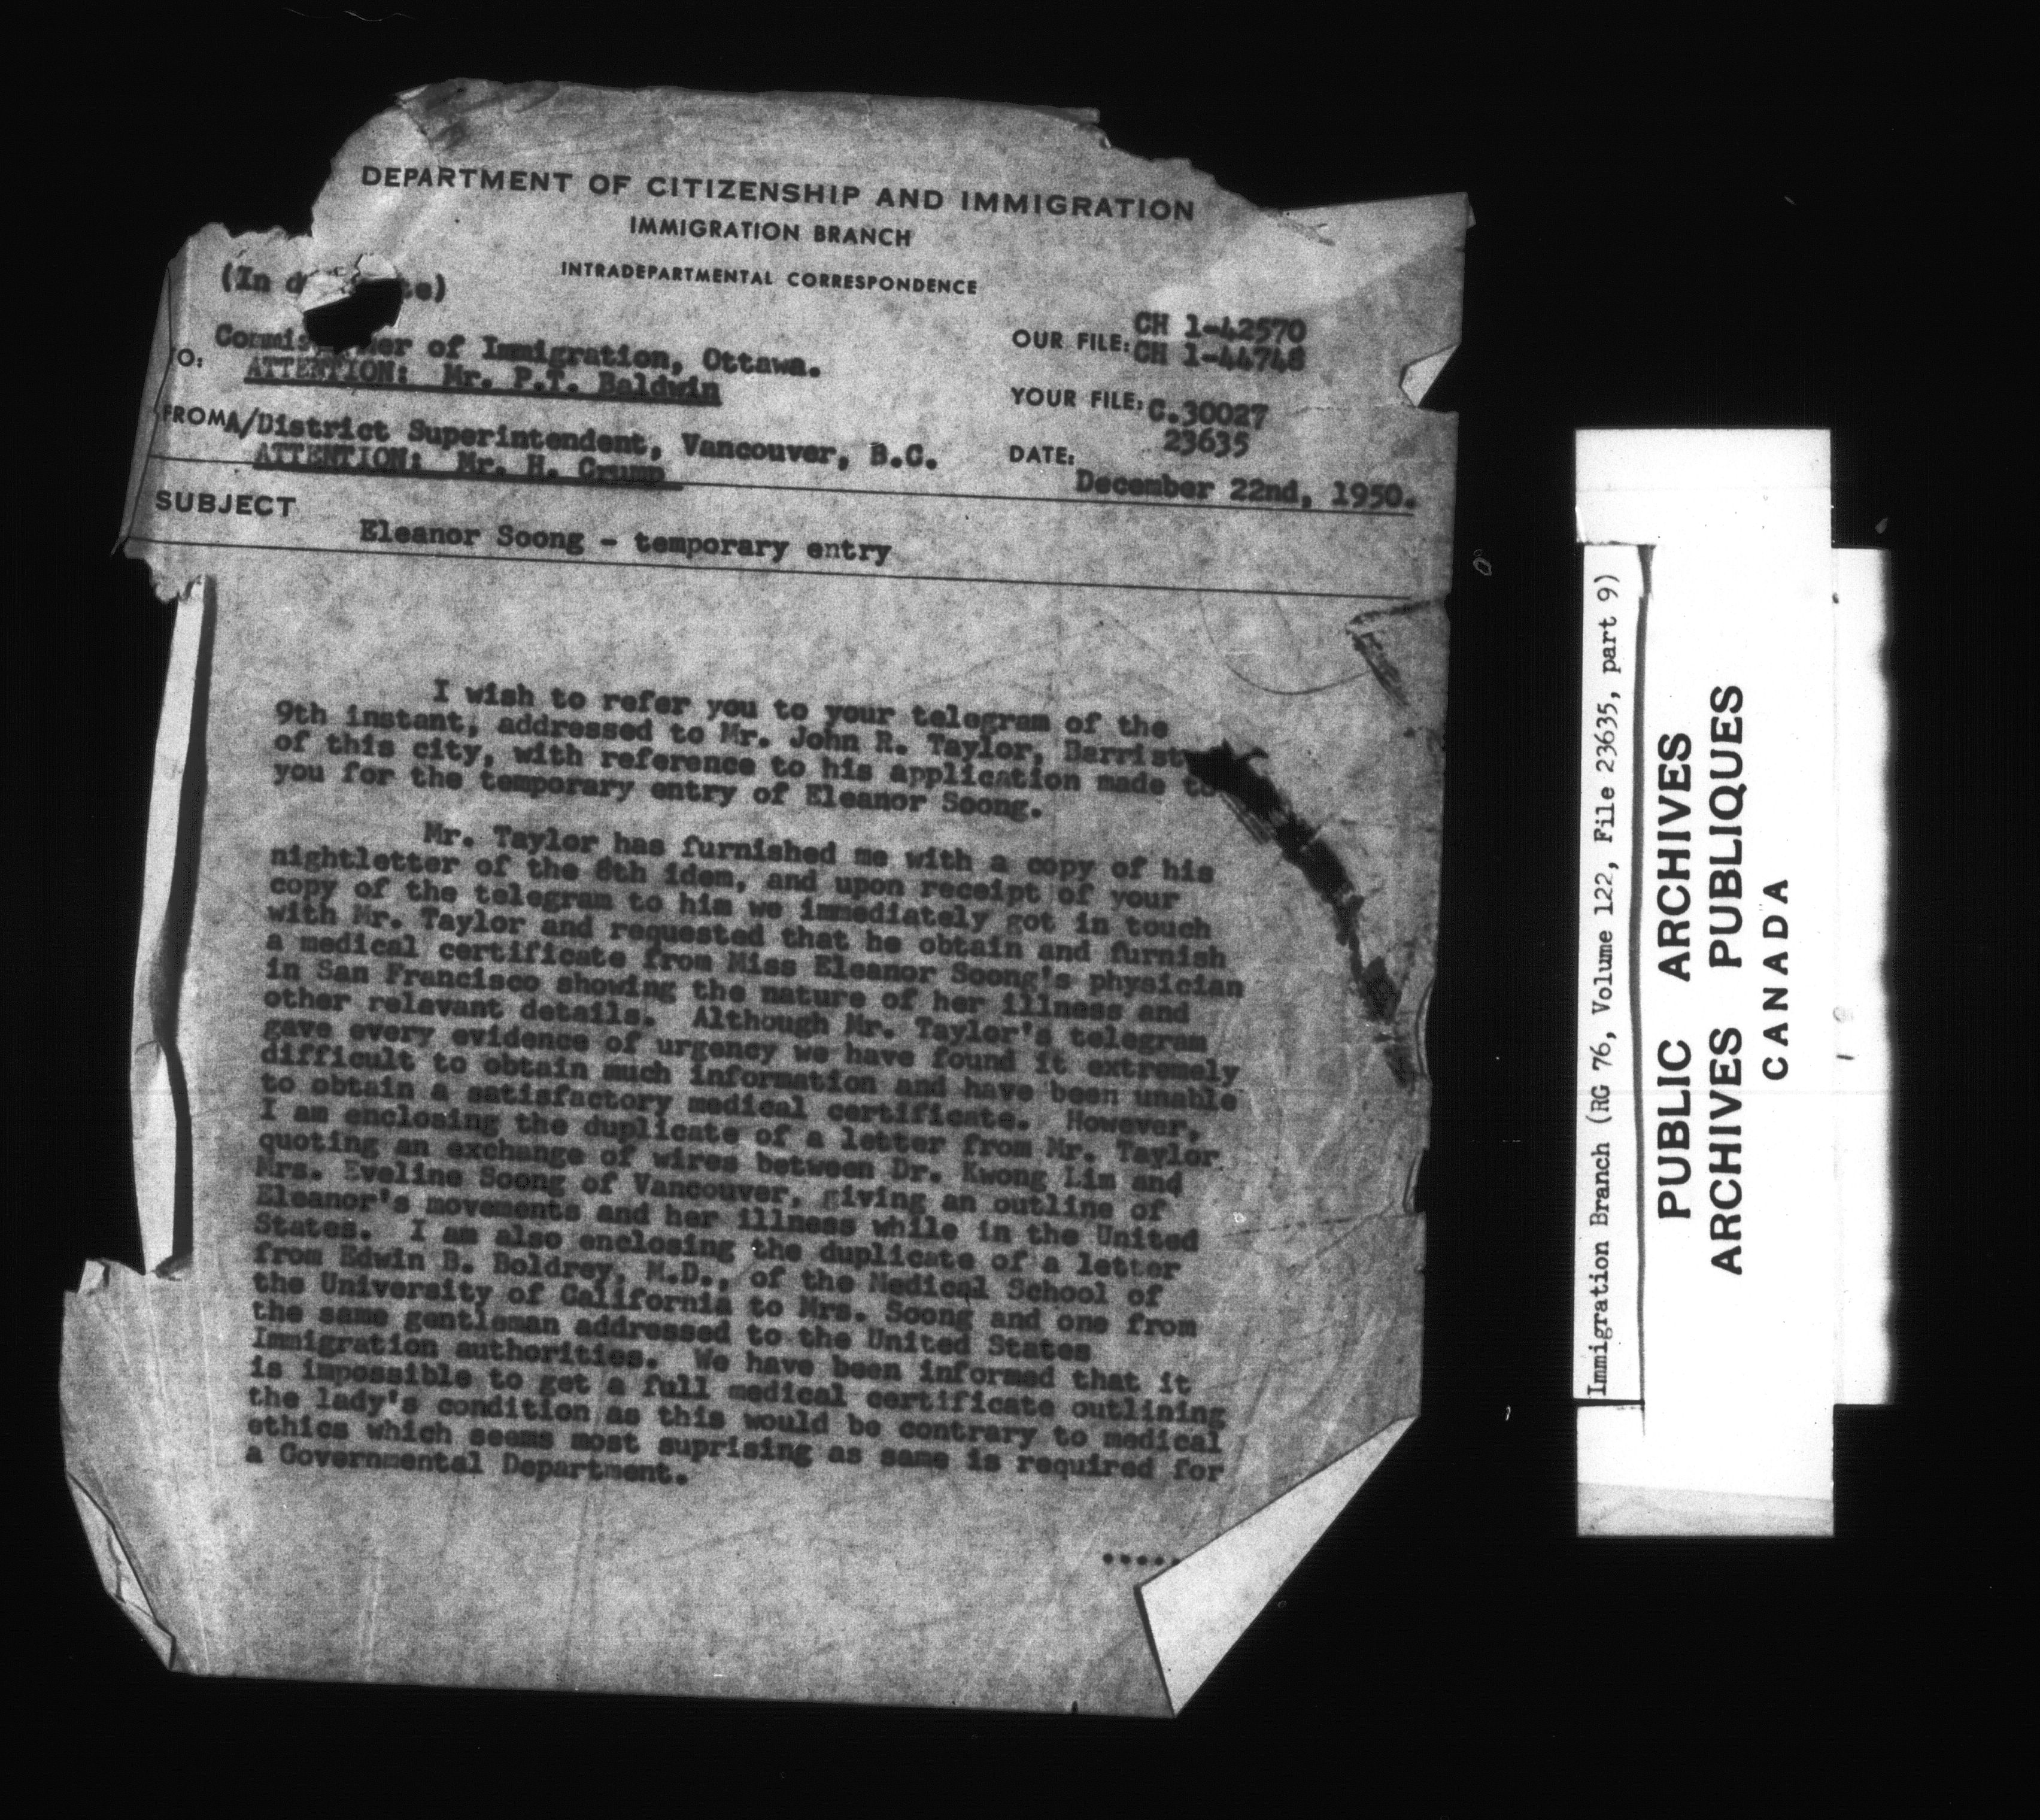 DEPARTMENT OF CITIZENSHIP AND IMMIGRATION
IMMIGRATION BRANCH
INTRADEPARTMENTAL CORRESPONDENCE
(In
OUR FILE: CH 1-42570
CH 1-44748
TO: Commissioner of Immigration, Ottawa.
ATTENTION: Mr. P.T. Baldwin
YOUR FILE: C.30027
23635
FROM A/District Superintendent, Vancouver, B.C.
ATTENTION: Mr. H. Crump
DATE:
December 22nd, 1950.
SUBJECT
Eleanor Soong - temporary entry
I wish to refer you to your telegram of the
9th instant, addressed to Mr. John R. Taylor, Barrist
of this city, with reference to his application made to
you for the temporary entry of Eleanor Soong.
Mr. Taylor has furnished me with a copy of his
nightletter of the 8th idem, and upon receipt of your
copy of the telegram to him we immediately got in touch
with Mr. Taylor and requested that he obtain and furnish
a medical certificate from Miss Eleanor Soong's physician
in San Francisco showing the nature of her illness and
other relevant details. Although Mr. Taylor's telegram
gave every evidence of urgency we have found it extremely
difficult to obtain much information and have been unable
to obtain a satisfactory medical certificate. However,
I am enclosing the duplicate of a letter from Mr. Taylor
quoting an exchange of wires between Dr. Kwong Lim and
Mrs. Eveline Soong of Vancouver, giving an outline of
Eleanor's movements and her illness while in the United
States. I am also enclosing the duplicate of a letter
from Edwin B. Boldrey, M.D., of the Medical School of
the University of California to Mrs. Soong and one from
the same gentleman addressed to the United States
Immigration authorities. We have been informed that it
is impossible to get a full medical certificate outlining
the lady's condition as this would be contrary to medical
ethics which seems most suprising as same is required for
a Governmental Department.
.....
Immigration Branch (RG 76, Volume 122, File 23635, part 9)
PUBLIC ARCHIVES
ARCHIVES PUBLIQUES
CANADA